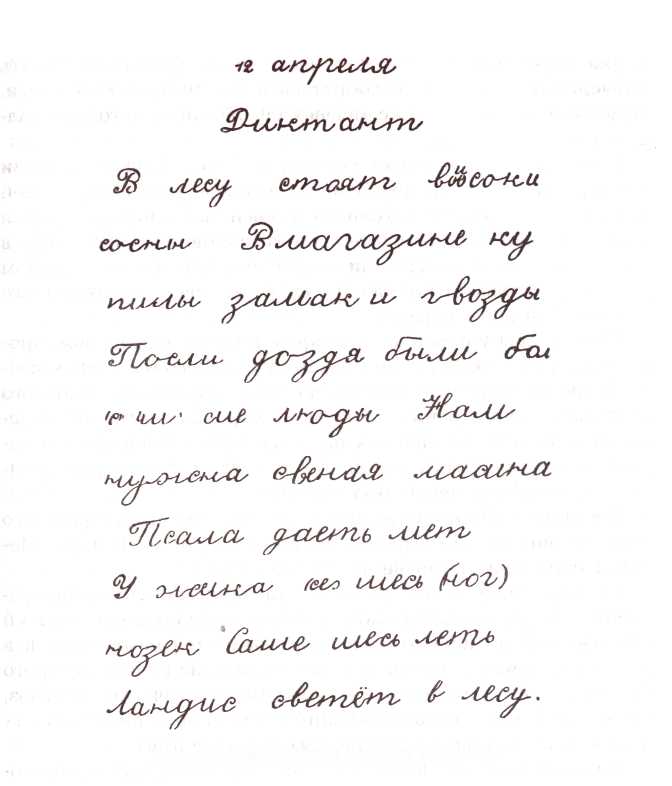 12 апреля
Диктант
В лесу стоят высоки
сосны В магазине ку
пилы замак и гвозды
Посли доздя были бол
сие люды Нам
нужна свеная масина
Псала даеть мет
У жика шесь (ног)
позек Саше шесь леть
Ландис светёт в лесу.